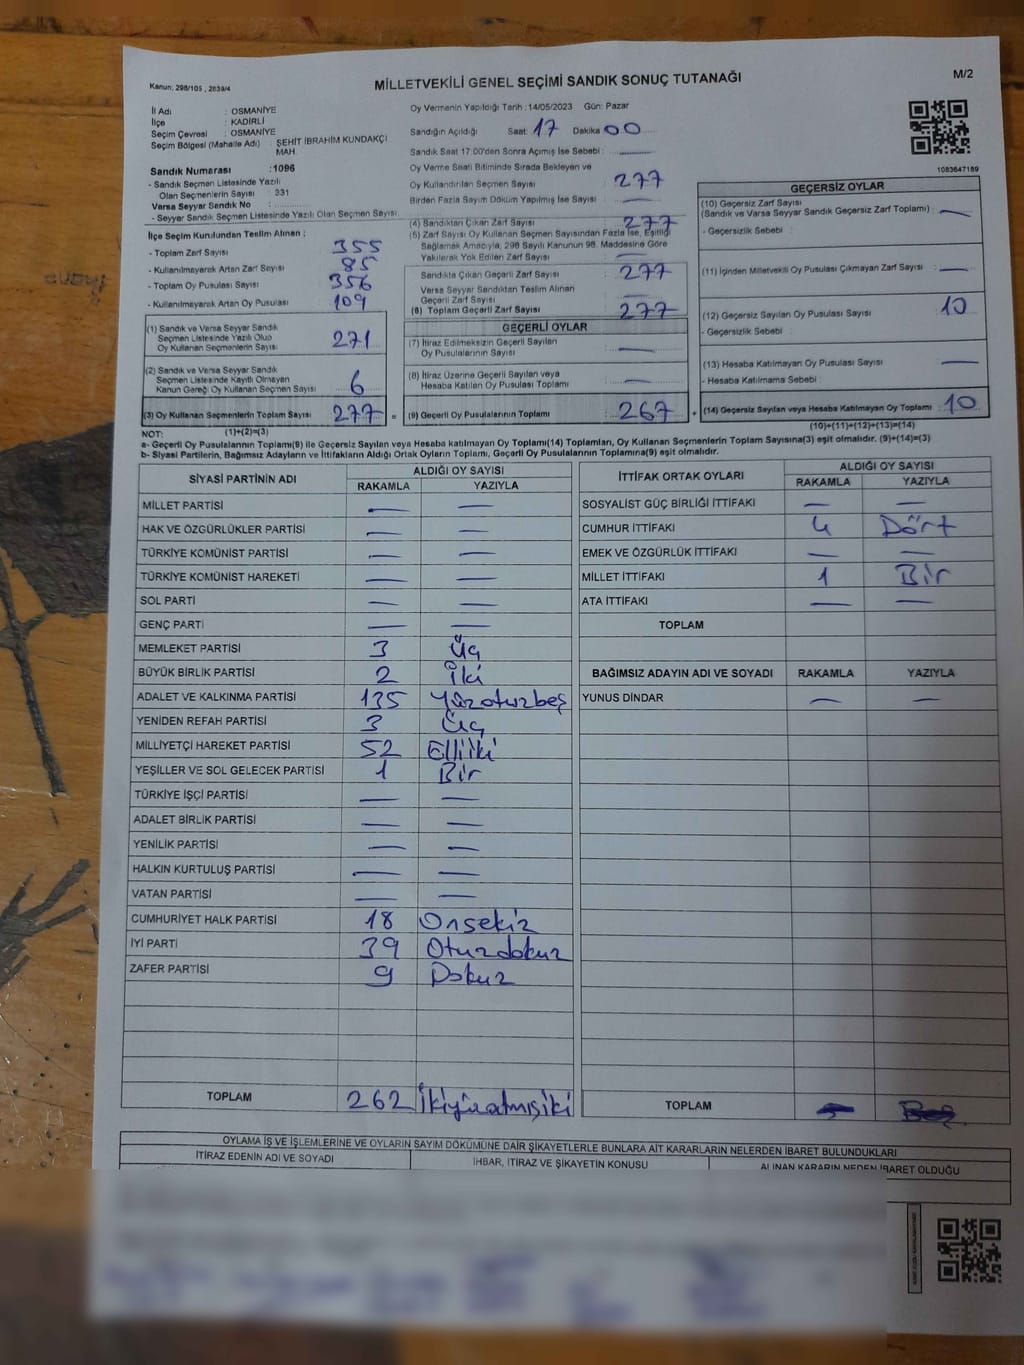 Kanun, 298/105, 2839/4
MİLLETVEKİLİ GENEL SEÇİMİ SANDIK SONUÇ TUTANAĞI
M/2
İl Adı : OSMANİYE
İlçe : KADİRLİ
Seçim Çevresi : OSMANİYE
Seçim Bölgesi (Mahalle Adı) : ŞEHİT İBRAHİM KUNDAKÇI
MAH.
Sandık Numarası : 1096
- Sandık Seçmen Listesinde Yazılı
Olan Seçmenlerin Sayısı : 331
Varsa Seyyar Sandık No :
- Seyyar Sandık Seçmen Listesinde Yazılı Olan Seçmen Sayısı:
İlçe Seçim Kurulundan Teslim Alınan :
- Toplam Zarf Sayısı : 355
- Kullanılmayarak Artan Zarf Sayısı : 85
- Toplam Oy Pusulası Sayısı : 356
- Kullanılmayarak Artan Oy Pusulası : 109
(1) Sandık ve Varsa Seyyar Sandık
Seçmen Listesinde Yazılı Olup
Oy Kullanan Seçmenlerin Sayısı : 271
(2) Sandık ve Varsa Seyyar Sandık
Seçmen Listesinde Kayıtlı Olmayan
Kanun Gereği Oy Kullanan Seçmen Sayısı : 6
(3) Oy Kullanan Seçmenlerin Toplam Sayısı : 277
Oy Vermenin Yapıldığı Tarih : 14/05/2023 Gün: Pazar
Sandığın Açıldığı Saat: 17 Dakika 00
Sandık Saat 17:00'den Sonra Açılmış İse Sebebi :
Oy Verme Saati Bitiminde Sırada Bekleyen ve
Oy Kullandırılan Seçmen Sayısı : 277
Birden Fazla Sayım Döküm Yapılmış İse Sayısı :
(4) Sandıktan Çıkan Zarf Sayısı : 277
(5) Zarf Sayısı Oy Kullanan Seçmen Sayısından Fazla İse, Eşitliği
Sağlamak Amacıyla, 298 Sayılı Kanunun 98. Maddesine Göre
Yakılarak Yok Edilen Zarf Sayısı :
Sandıkta Çıkan Geçerli Zarf Sayısı : 277
Varsa Seyyar Sandıktan Teslim Alınan
Geçerli Zarf Sayısı :
(6) Toplam Geçerli Zarf Sayısı : 277
GEÇERLİ OYLAR
(7) İtiraz Edilmeksizin Geçerli Sayılan
Oy Pusulalarının Sayısı :
(8) İtiraz Üzerine Geçerli Sayılan veya
Hesaba Katılan Oy Pusulası Toplamı :
= (9) Geçerli Oy Pusulalarının Toplamı : 267
1083647189
GEÇERSİZ OYLAR
(10) Geçersiz Zarf Sayısı
(Sandık ve Varsa Seyyar Sandık Geçersiz Zarf Toplamı) : —
- Geçersizlik Sebebi :
(11) İçinden Milletvekili Oy Pusulası Çıkmayan Zarf Sayısı : —
(12) Geçersiz Sayılan Oy Pusulası Sayısı : 10
- Geçersizlik Sebebi :
(13) Hesaba Katılmayan Oy Pusulası Sayısı : —
- Hesaba Katılmama Sebebi :
+ (14) Geçersiz Sayılan veya Hesaba Katılmayan Oy Toplamı : 10
NOT: (1)+(2)=(3)
(10)+(11)+(12)+(13)=(14)
a- Geçerli Oy Pusulalarının Toplamı(9) ile Geçersiz Sayılan veya Hesaba katılmayan Oy Toplamı(14) Toplamları, Oy Kullanan Seçmenlerin Toplam Sayısına(3) eşit olmalıdır. (9)+(14)=(3)
b- Siyasi Partilerin, Bağımsız Adayların ve İttifakların Aldığı Ortak Oyların Toplamı, Geçerli Oy Pusulalarının Toplamına(9) eşit olmalıdır.
SİYASİ PARTİNİN ADI ALDIĞI OY SAYISI
RAKAMLA YAZIYLA
MİLLET PARTİSİ — —
HAK VE ÖZGÜRLÜKLER PARTİSİ — —
TÜRKİYE KOMÜNİST PARTİSİ — —
TÜRKİYE KOMÜNİST HAREKETİ — —
SOL PARTİ — —
GENÇ PARTİ — —
MEMLEKET PARTİSİ 3 Üç
BÜYÜK BİRLİK PARTİSİ 2 İki
ADALET VE KALKINMA PARTİSİ 135 Yüzotuzbeş
YENİDEN REFAH PARTİSİ 3 Üç
MİLLİYETÇİ HAREKET PARTİSİ 52 Elliiki
YEŞİLLER VE SOL GELECEK PARTİSİ 1 Bir
TÜRKİYE İŞÇİ PARTİSİ — —
ADALET BİRLİK PARTİSİ — —
YENİLİK PARTİSİ — —
HALKIN KURTULUŞ PARTİSİ — —
VATAN PARTİSİ — —
CUMHURİYET HALK PARTİSİ 18 Onsekiz
İYİ PARTİ 39 Otuzdokuz
ZAFER PARTİSİ 9 Dokuz
TOPLAM 262 İkiyüzatmışiki
İTTİFAK ORTAK OYLARI ALDIĞI OY SAYISI
RAKAMLA YAZIYLA
SOSYALİST GÜÇ BİRLİĞİ İTTİFAKI — —
CUMHUR İTTİFAKI 4 Dört
EMEK VE ÖZGÜRLÜK İTTİFAKI — —
MİLLET İTTİFAKI 1 Bir
ATA İTTİFAKI — —
TOPLAM
BAĞIMSIZ ADAYIN ADI VE SOYADI RAKAMLA YAZIYLA
YUNUS DİNDAR — —
TOPLAM
OYLAMA İŞ VE İŞLEMLERİNE VE OYLARIN SAYIM DÖKÜMÜNE DAİR ŞİKAYETLERLE BUNLARA AİT KARARLARIN NELERDEN İBARET BULUNDUKLARI
İTİRAZ EDENİN ADI VE SOYADI İHBAR, İTİRAZ VE ŞİKAYETİN KONUSU ALINAN KARARIN NEDEN İBARET OLDUĞU